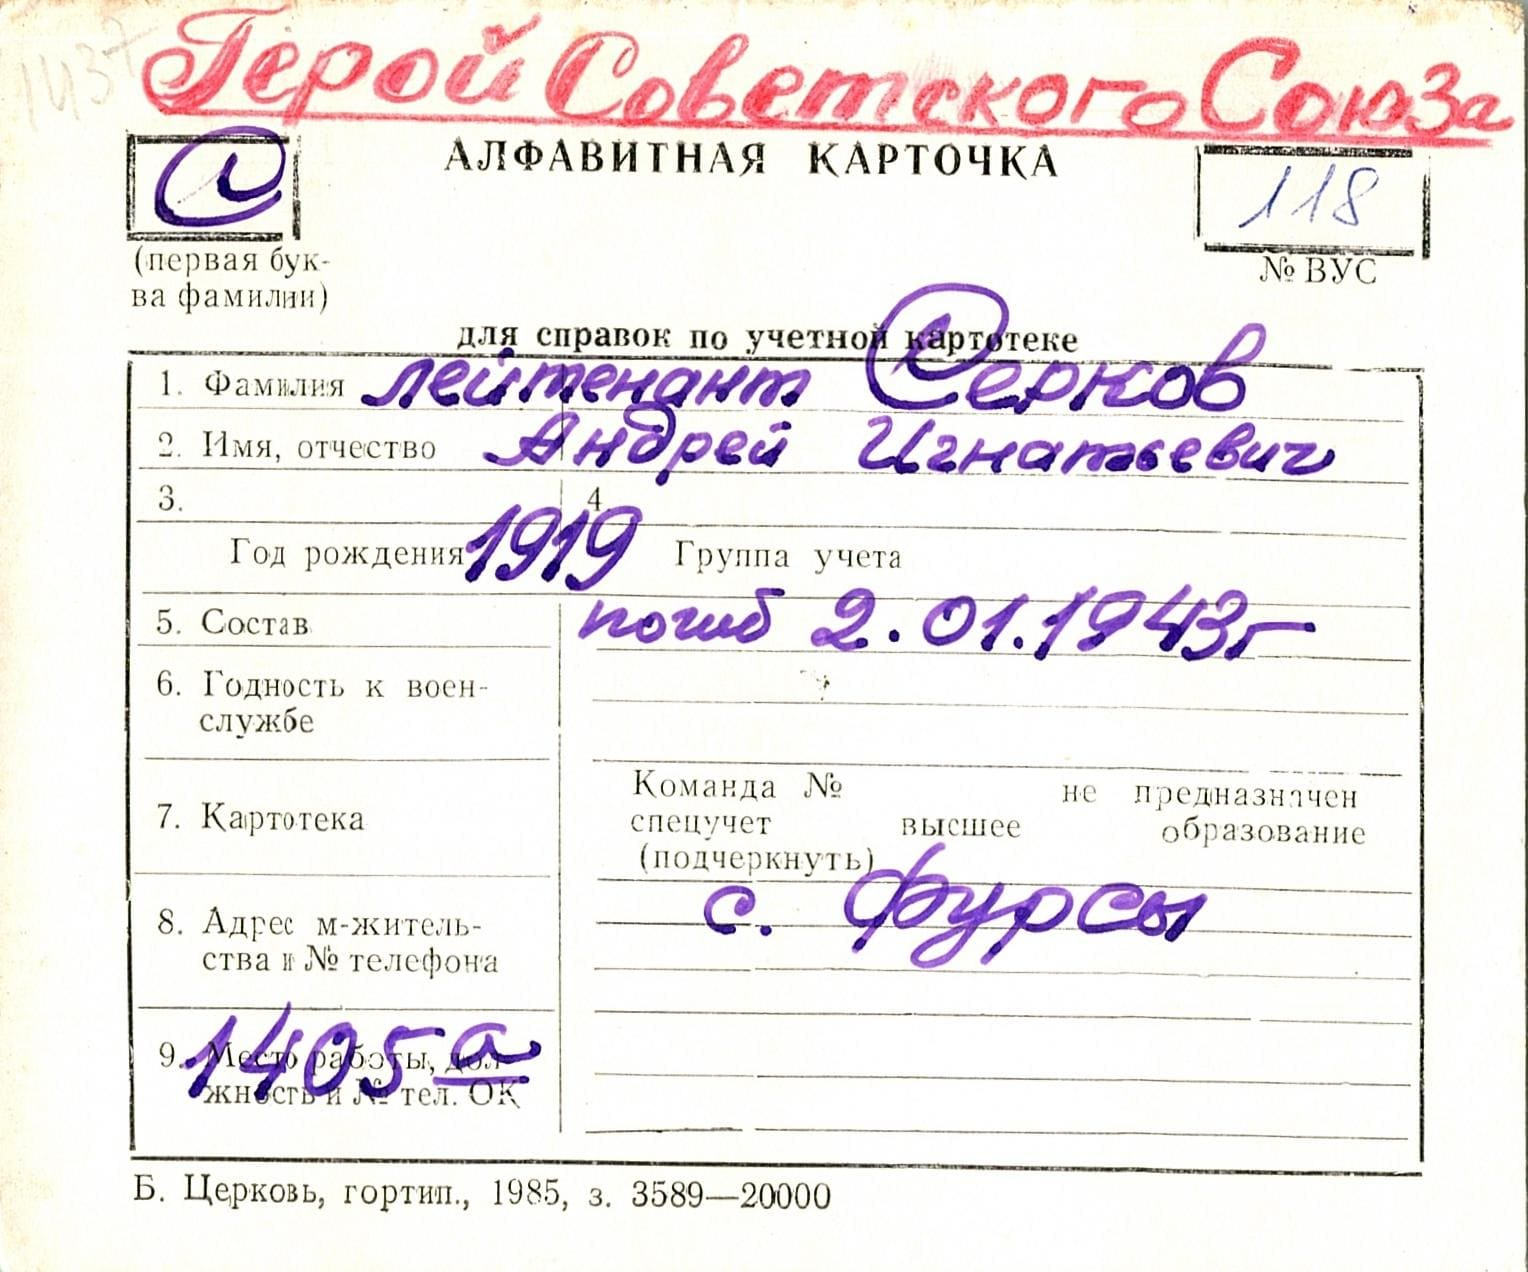 1437
Герой Советского Союза
АЛФАВИТНАЯ КАРТОЧКА
С
118
(первая бук-
ва фамилии)
№ ВУС
для справок по учетной картотеке
1. Фамилия лейтенант Серков
2. Имя, отчество Андрей Игнатьевич
3. 4
Год рождения 1919 Группа учета
5. Состав погиб 2.01.1943г
6. Годность к воен-
службе
Команда № не предназначен
7. Картотека
спецучет высшее образование
(подчеркнуть)
8. Адрес м-житель-
ства и № телефона
с. Фурсы
1405а
9. Место работы, дол-
жность и № тел. ОК
Б. Церковь, гортип., 1985, з. 3589—20000